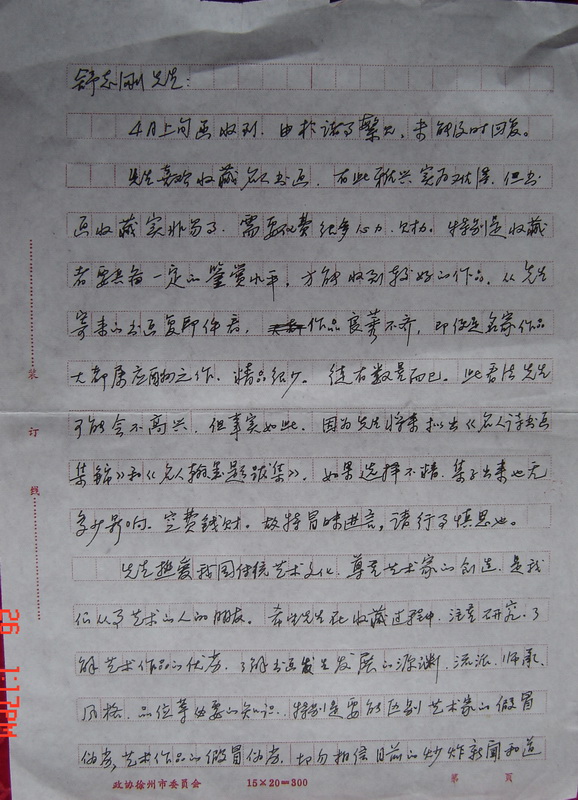 舒志刚先生:
4月上旬函收到.由于诸事繁忙,未能及时回复。
先生喜欢收藏名人书画.有此雅兴实为优等.但书
画收藏实非易事.需要花费很多心力、欠妥.特别是收藏
者要具备一定的鉴赏水平,方能收到较好的作品.从先生
寄来的书画复印件看,作品良莠不齐,即使是名家作品
大都属应酬之作.精品很少。徒有数量而已。此看法先生
可能会不高兴.但事实如此.因为先生将来拟出《名人诗书画
集锦》和《名人翰墨题跋集》.如果选择不精.集子出来也无
多少影响.空费钱财.故特冒昧进言,请行事慎思也。
先生热爱我国传统艺术文化.尊重艺术家的创造.是我
们从事艺术的人的朋友。希望先生在收藏过程中.注意研究.了
解艺术作品的优劣.了解书画发生发展的源渊.流派.师承.
风格.品位等必要的知识.特别是要能区别艺术家的假冒
伪劣,艺术作品的假冒伪劣.切勿相信目前的炒炸新闻和道
装
订
线
政协徐州市委员会 15×20=300 第 页
26 1:17AM